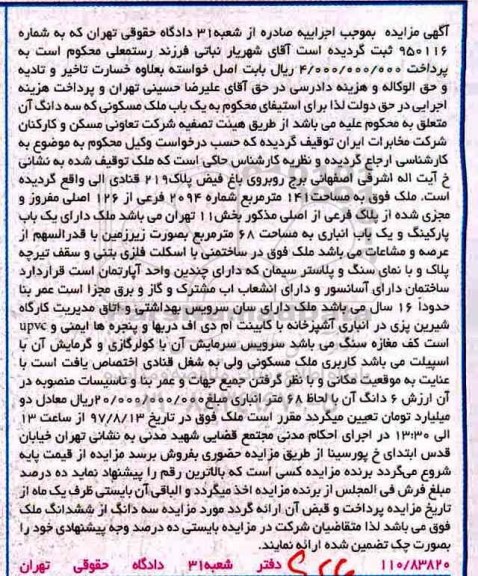 آگهی مزایده بموجب اجراییه صادره از شعبه۳۱ دادگاه حقوقی تهران که به شماره
۹۵۰۱۱۶ ثبت گردیده است آقای شهریار نباتی فرزند رستمعلی محکوم است به
پرداخت ۴/۰۰۰/۰۰۰/۰۰۰ ریال بابت اصل خواسته بعلاوه خسارت تاخیر و تادیه
و حق الوکاله و هزینه دادرسی در حق آقای علیرضا حسینی تهران و پرداخت هزینه
اجرایی در حق دولت لذا برای استیفای محکوم به یک باب ملک مسکونی که سه دانگ آن
متعلق به محکوم علیه می باشد از طریق هیئت تصفیه شرکت تعاونی مسکن و کارکنان
شرکت مخابرات ایران توقیف گردیده که حسب درخواست وکیل محکوم به موضوع به
کارشناسی ارجاع گردیده و نظریه کارشناس حاکی است که ملک توقیف شده به نشانی
خ آیت اله اشرفی اصفهانی برج روبروی باغ فیض پلاک۲۱۹ قنادی الی واقع گردیده
است. ملک فوق به مساحت۱۴۱ مترمربع شماره ۲۰۹۴ فرعی از ۱۲۶ اصلی مفروز و
مجزی شده از پلاک فرعی از اصلی مذکور بخش۱۱ تهران می باشد ملک دارای یک باب
پارکینگ و یک باب انباری به مساحت ۶۸ مترمربع بصورت زیرزمین با قدرالسهم از
عرصه و مشاعات می باشد ملک فوق در ساختمنی با اسکلت فلزی بتنی و سقف تیرچه
پلاک و با نمای سنگ و پلاستر سیمان که دارای چندین واحد آپارتمان است قراردارد
ساختمان دارای آسانسور و دارای انشعاب اب مشترک و گاز و برق مجزا است عمر بنا
حدوداً ۱۶ سال می باشد ملک دارای سان سرویس بهداشتی و اتاق مدیریت کارگاه
شیرین پزی در انباری آشپزخانه با کابینت ام دی اف دربها و پنجره ها ایمنی و upvc
است کف مغازه سنگ می باشد سرویس سرمایش آن با کولرگازی و گرمایش آن با
اسپیلت می باشد کاربری ملک مسکونی ولی به شغل قنادی اختصاص یافت است با
عنایت به موقعیت مکانی و با نظر گرفتن جمیع جهات و عمر بنا و تاسیسات منصوبه در
آن ارزش ۶ دانگ آن با لحاظ ۶۸ متر انباری مبلغ۲۰/۰۰۰/۰۰۰/۰۰۰ریال معادل دو
میلیارد تومان تعیین میگردد مقرر است ملک فوق در تاریخ ۹۷/۸/۱۳ از ساعت ۱۳
الی ۱۳:۳۰ در اجرای احکام مدنی مجتمع قضایی شهید مدنی به نشانی تهران خیابان
قدس ابتدای خ پورسینا از طریق مزایده حضوری بفروش برسد مزایده از قیمت پایه
شروع می‌گردد برنده مزایده کسی است که بالاترین رقم را پیشنهاد نماید ده درصد
مبلغ فرش فی المجلس از برنده مزایده اخذ میگردد و الباقی آن بایستی ظرف یک ماه از
تاریخ مزایده پرداخت و قبض آن ارائه گردد مورد مزایده سه دانگ از ششدانگ ملک
فوق می باشد لذا متقاضیان شرکت در مزایده بایستی ده درصد وجه پیشنهادی خود را
بصورت چک تضمین شده ارائه نمایند.
۱۱۰/۸۳۸۲۰ دفتر شعبه۳۱ دادگاه حقوقی تهران